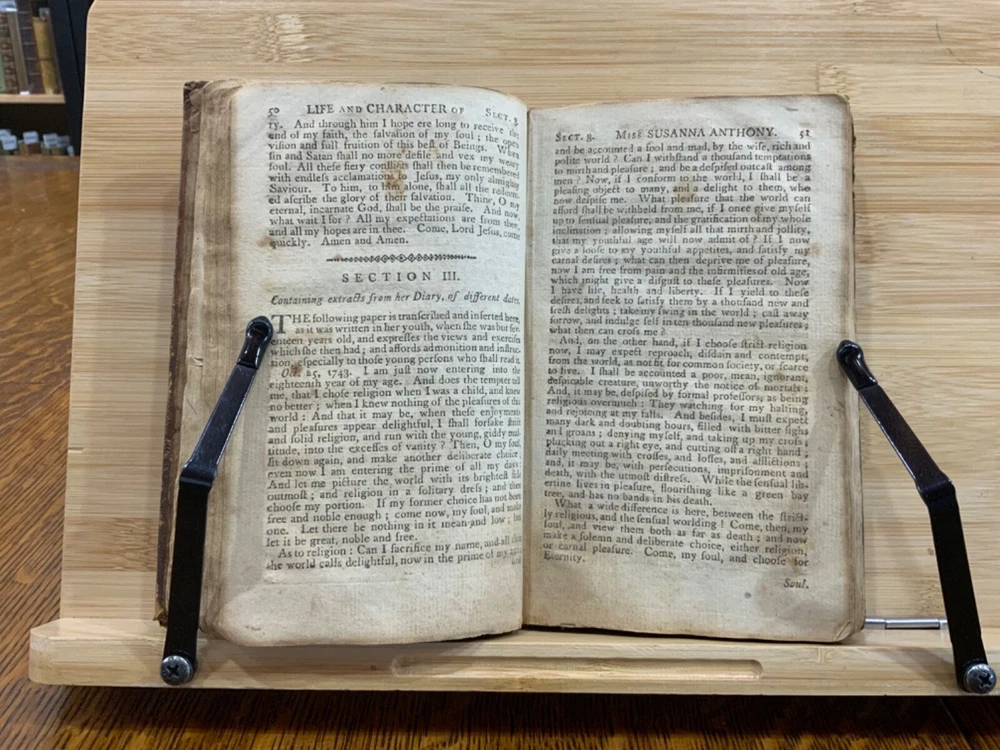 50 LIFE AND CHARACTER OF SECT. 3
ty. And through him I hope ere long to receive the
end of my faith, the ſalvation of my ſoul; the open
viſion and full fruition of this beſt of Beings. When
ſin and Satan ſhall no more defile and vex my weary
ſoul. All theſe fiery conflicts ſhall then be remembered
with endleſs acclamations to Jeſus, my only almighty
Saviour. To him, to him alone, ſhall all the redeem-
ed aſcribe the glory of their ſalvation. Thine, O my
eternal, incarnate God, ſhall be the praiſe. And now,
what wait I for? All my expectations are from thee,
and all my hopes are in thee. Come, Lord Jeſus, come
quickly. Amen and Amen.
SECTION III.
Containing extracts from her Diary, of different dates.
THE following paper is tranſcribed and inſerted here,
as it was written in her youth, when ſhe was but ſev-
enteen years old, and expreſſes the views and exerciſes
which ſhe then had; and affords admonition and inſtruc-
tion, eſpecially to thoſe young perſons who ſhall read it.
Oct. 25, 1743. I am juſt now entering into the
eighteenth year of my age. And does the tempter tell
me, that I choſe religion when I was a child, and knew
no better; when I knew nothing of the pleaſures of this
world: And that it may be, when theſe enjoyments
and pleaſures appear delightful, I ſhall forſake ſtrict
and ſolid religion, and run with the young, giddy mul-
titude, into the exceſſes of vanity? Then, O my ſoul,
ſit down again, and make another deliberate choice;
even now I am entering the prime of all my days:
And let me picture the world with its brighteſt ſide
outmoſt; and religion in a ſolitary dreſs; and then
chooſe my portion. If my former choice has not been
free and noble enough; come now, my ſoul, and make
one. Let there be nothing in it mean and low; but
let it be great, noble and free.
As to religion: Can I ſacrifice my name, and all that
the world calls delightful, now in the prime of my days
SECT. 3. MISS SUSANNA ANTHONY. 51
and be accounted a fool and mad, by the wiſe, rich and
polite world? Can I withſtand a thouſand temptations
to mirth and pleaſure; and be a deſpiſed outcaſt among
men? Now, if I conform to the world, I ſhall be a
pleaſing object to many, and a delight to them, who
now deſpiſe me. What pleaſure that the world can
afford ſhall be withheld from me, if I once give myſelf
up to ſenſual pleaſure, and the gratification of my whole
inclination; allowing myſelf all that mirth and jollity,
that my youthful age will now admit of? If I now
give a looſe to my youthful appetites, and ſatisfy my
carnal deſires; what can then deprive me of pleaſure,
now I am free from pain and the infirmities of old age,
which might give a diſguſt to theſe pleaſures. Now
I have life, health and liberty. If I yield to theſe
deſires, and ſeek to ſatisfy them by a thouſand new and
freſh delights; take my ſwing in the world; caſt away
ſorrow, and indulge ſelf in ten thouſand new pleaſures;
what then can croſs me?
And, on the other hand, if I chooſe ſtrict religion
now, I may expect reproach, diſdain and contempt,
from the world, as not fit for common ſociety, or ſcarce
to live. I ſhall be accounted a poor, mean, ignorant,
deſpicable creature, unworthy the notice of mortals:
And, it may be, deſpiſed by formal profeſſors, as being
religious overmuch: They watching for my halting,
and rejoicing at my falls. And beſides, I muſt expect
many dark and doubting hours, filled with bitter ſighs
and groans; denying myſelf, and taking up my croſs;
plucking out a right eye, and cutting off a right hand;
daily meeting with croſſes, and loſſes, and afflictions;
and, it may be, with perſecutions, impriſonment and
death, with the utmoſt diſtreſs. While the ſenſual lib-
ertine lives in pleaſure, flouriſhing like a green bay
tree, and has no bands in his death.
What a wide difference is here, between the ſtrict-
ly religious, and the ſenſual worldling! Come, then, my
ſoul, and view them both as far as death; and now
make a ſolemn and deliberate choice, either religion,
or carnal pleaſure. Come, my ſoul, and chooſe for
Eternity.
Soul.